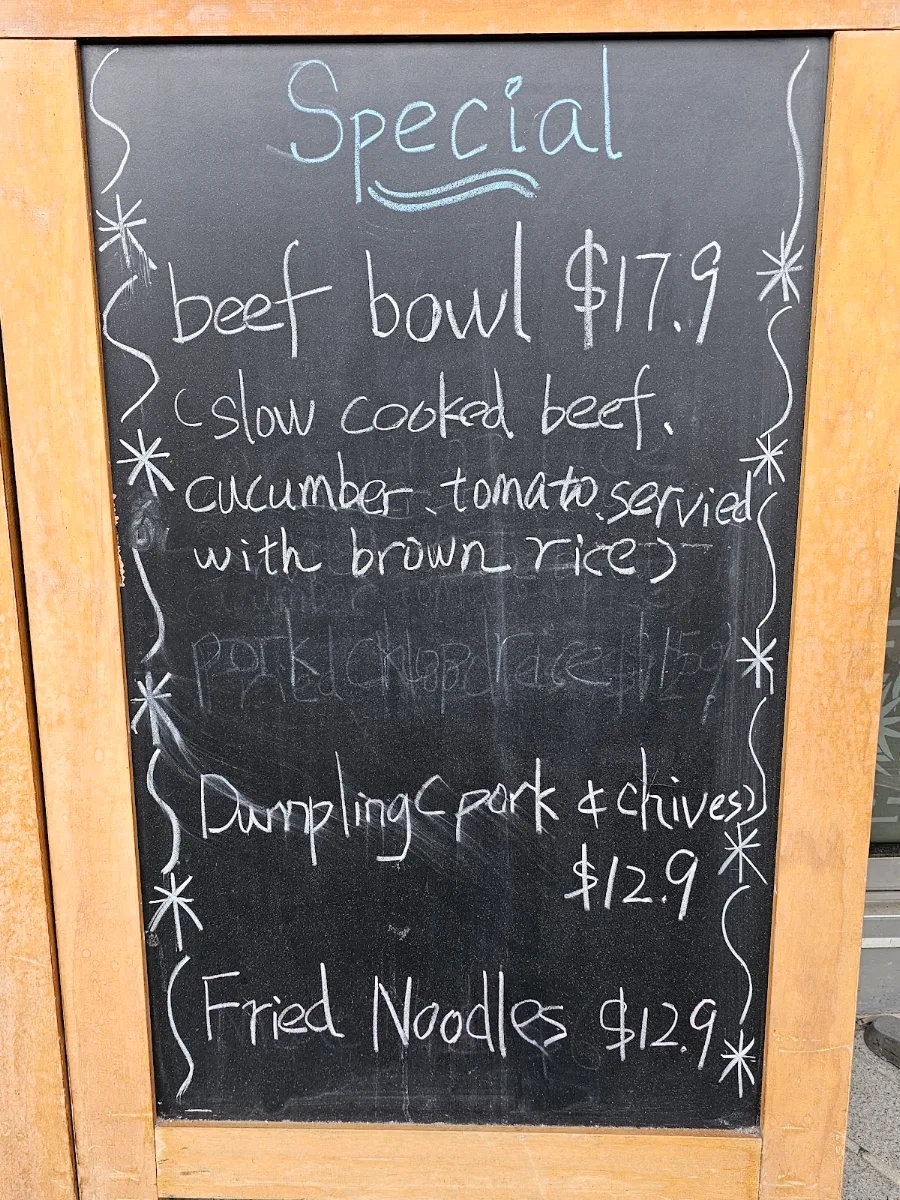 Special
beef bowl $17.9
(slow cooked beef.
cucumber. tomato. servied
with brown rice)
Dumpling(pork & chives)
$12.9
Fried Noodles $12.9